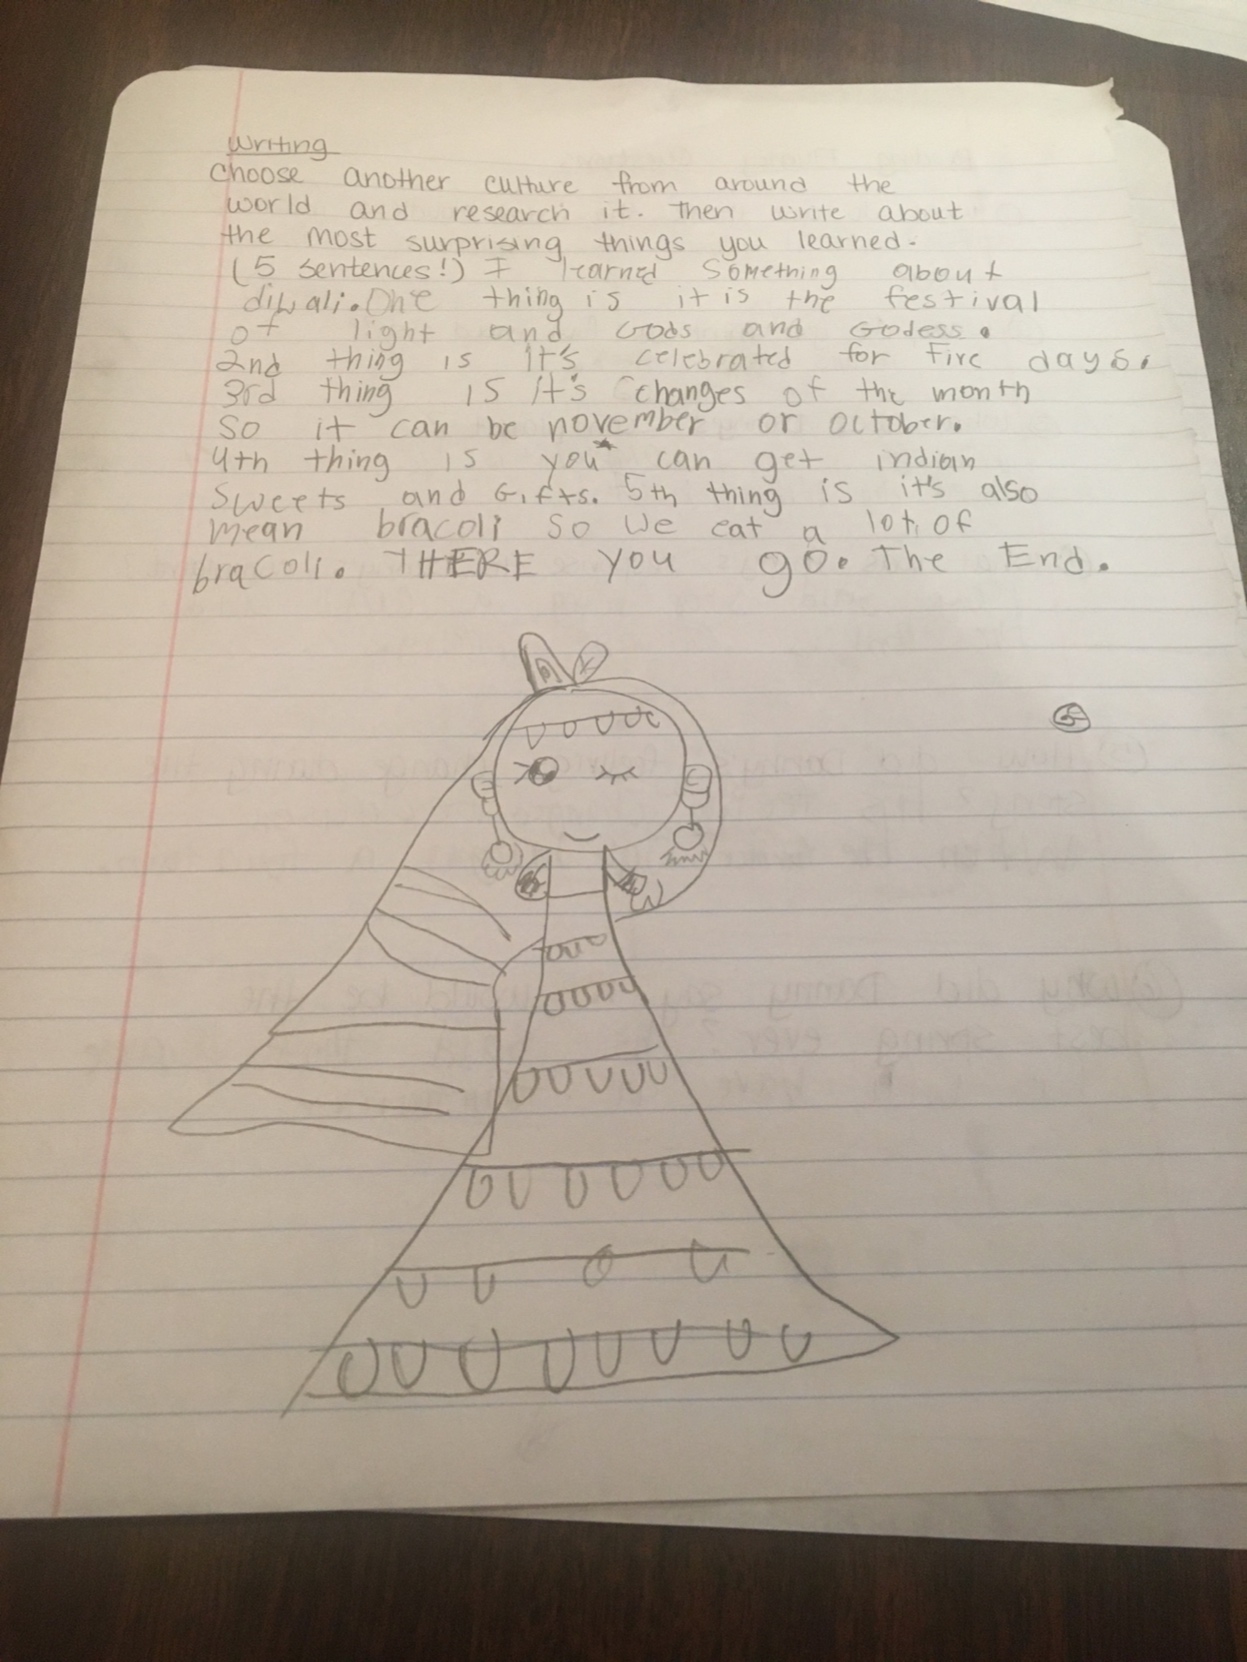 Writing
Choose another culture from around the
world and research it. Then write about
the most surprising things you learned.
(5 sentences!) I learned something about
diwali. One thing is it is the festival
of light and Gods and Godess.
2nd thing is it's celebrated for five days.
3rd thing is it's changes of the month
So it can be november or october.
4th thing is you can get indian
Sweets and Gifts. 5th thing is it's also
mean bracoli so we eat a lot of
bracoli. THERE you go. The End.